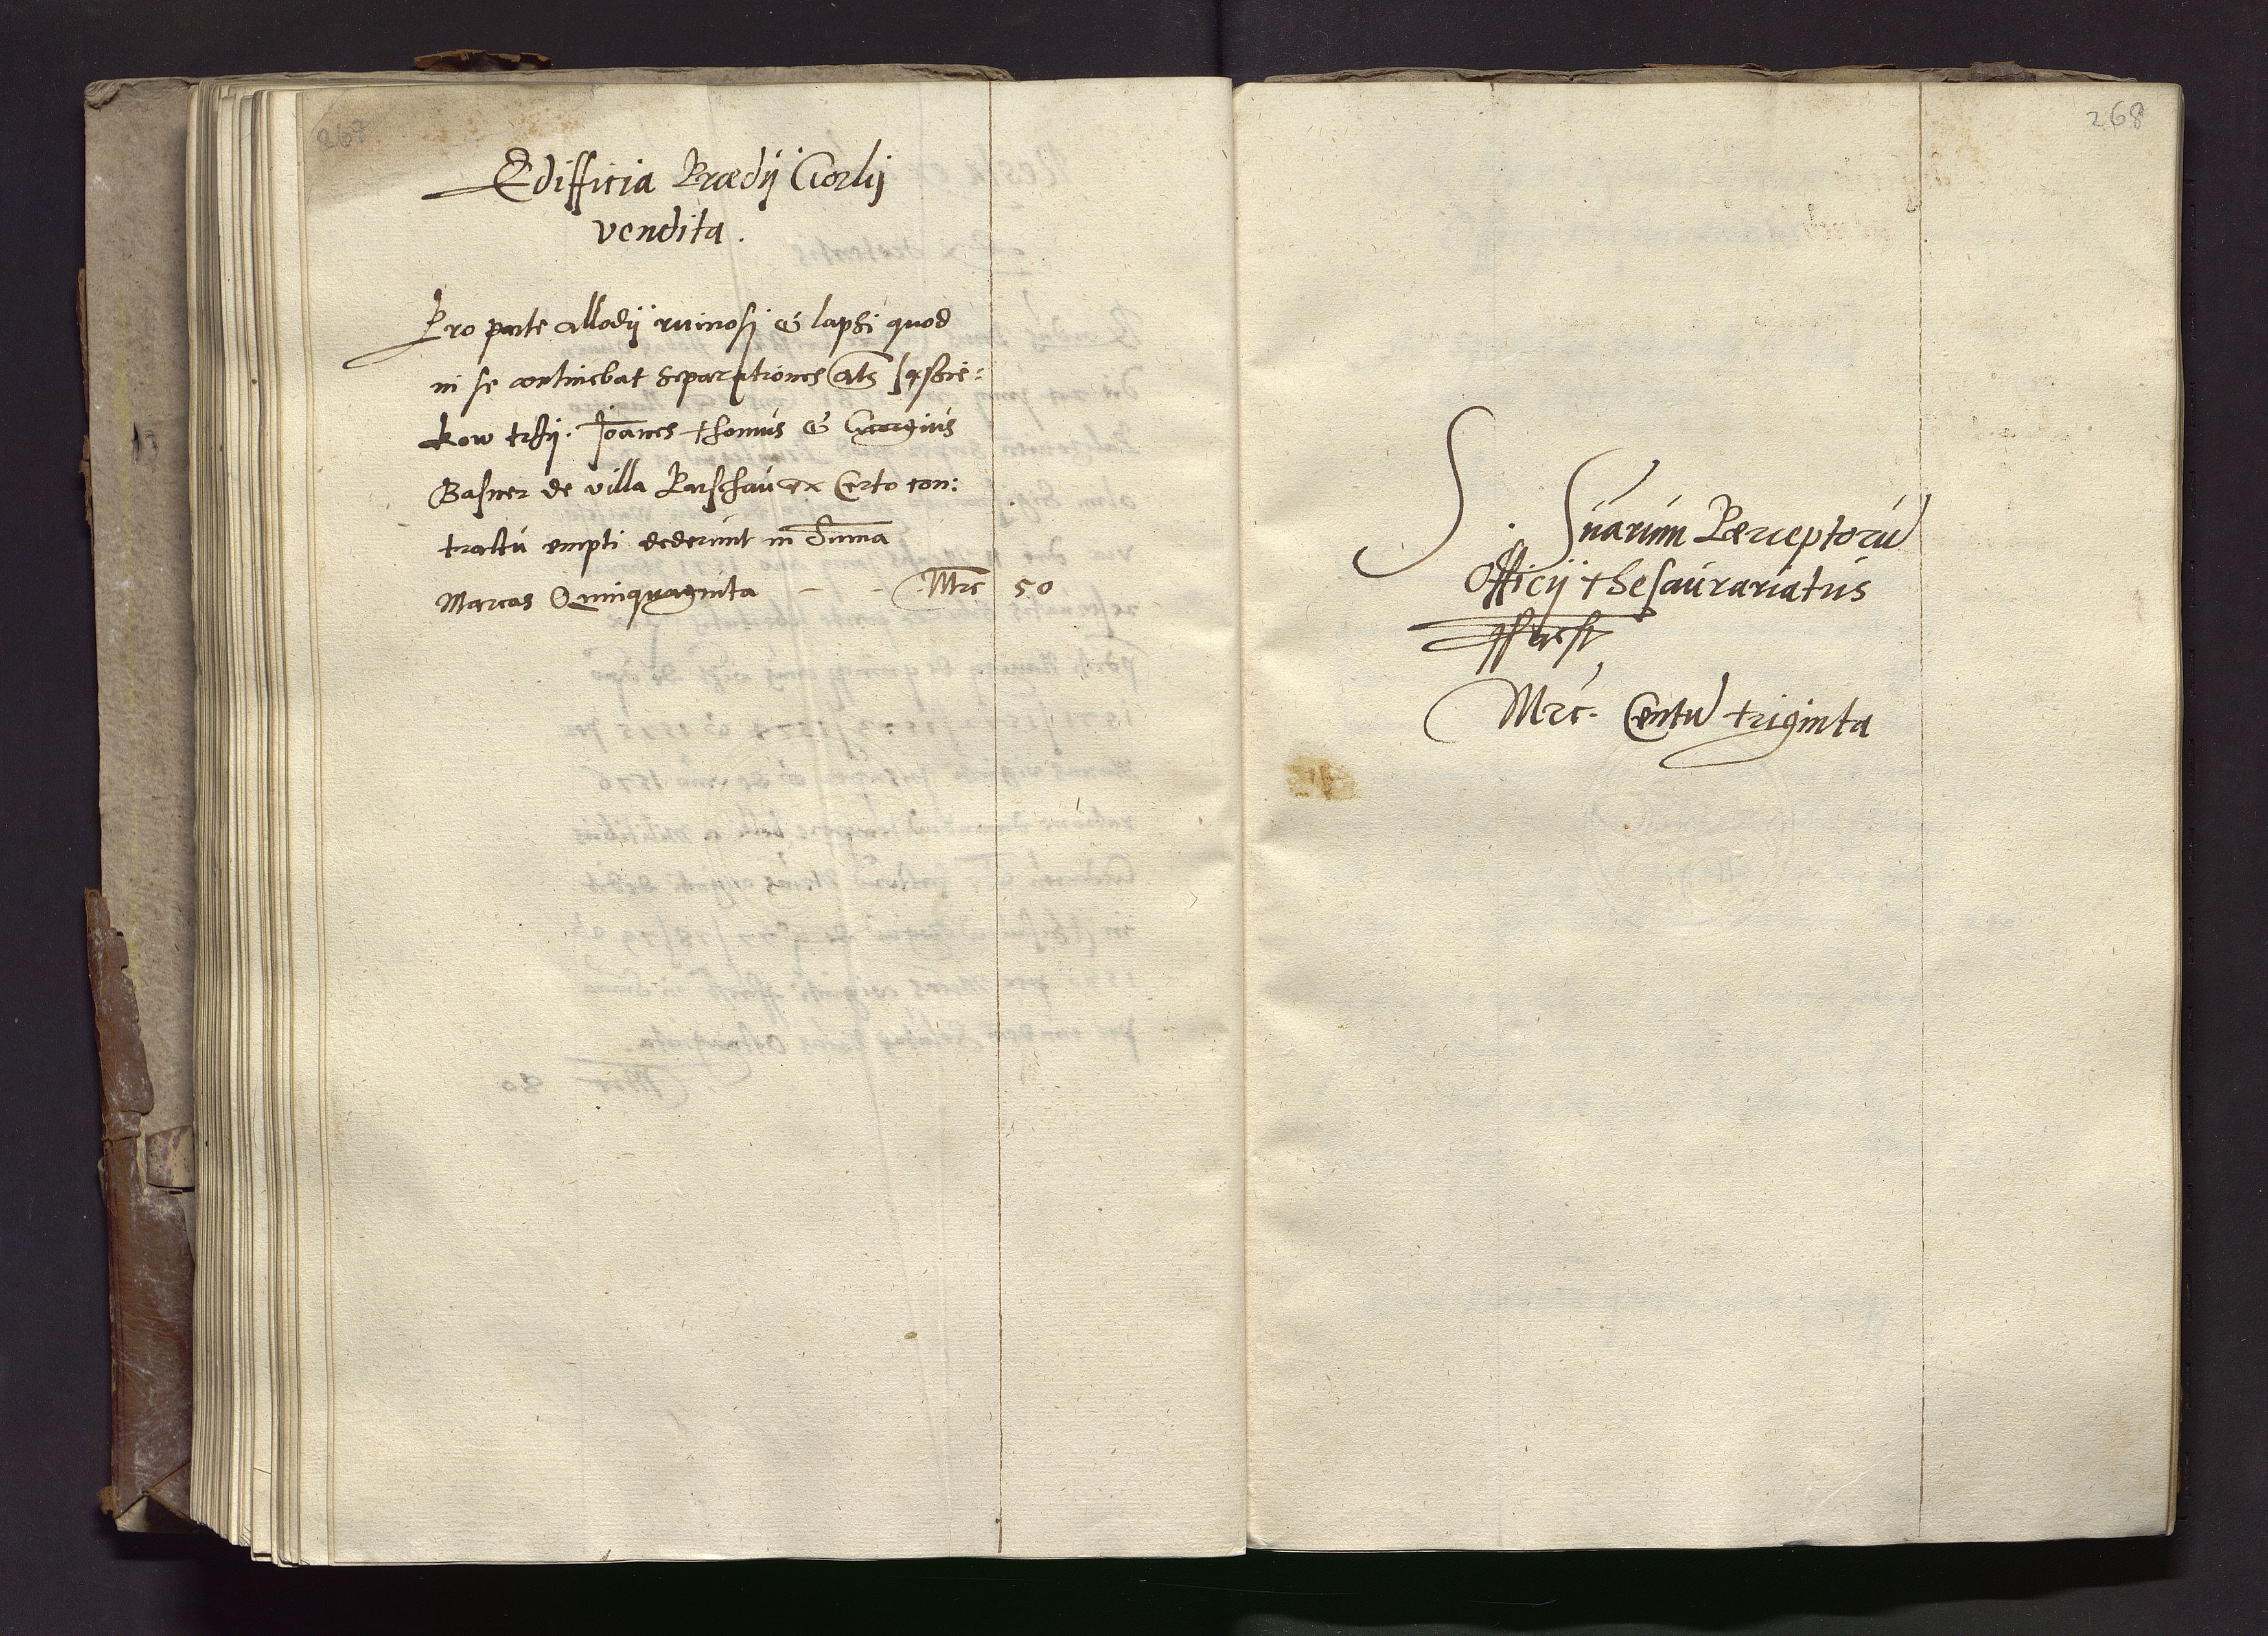 267
Edifficia Prædij Gorlij
vendita.
Pro parte allodij ruinosi & lapsi quod
in se continebat separationes als
kow trzy. Joānes thomus & Georgius
Basner de villa Parschau ex Certo con:
tractu empti dederunt in Suma
Marcas Quinquaginta - - Mrc 50
268
S. Suarum Perceptorū
Officij thesaurariatus
Mrc. Centū triginta